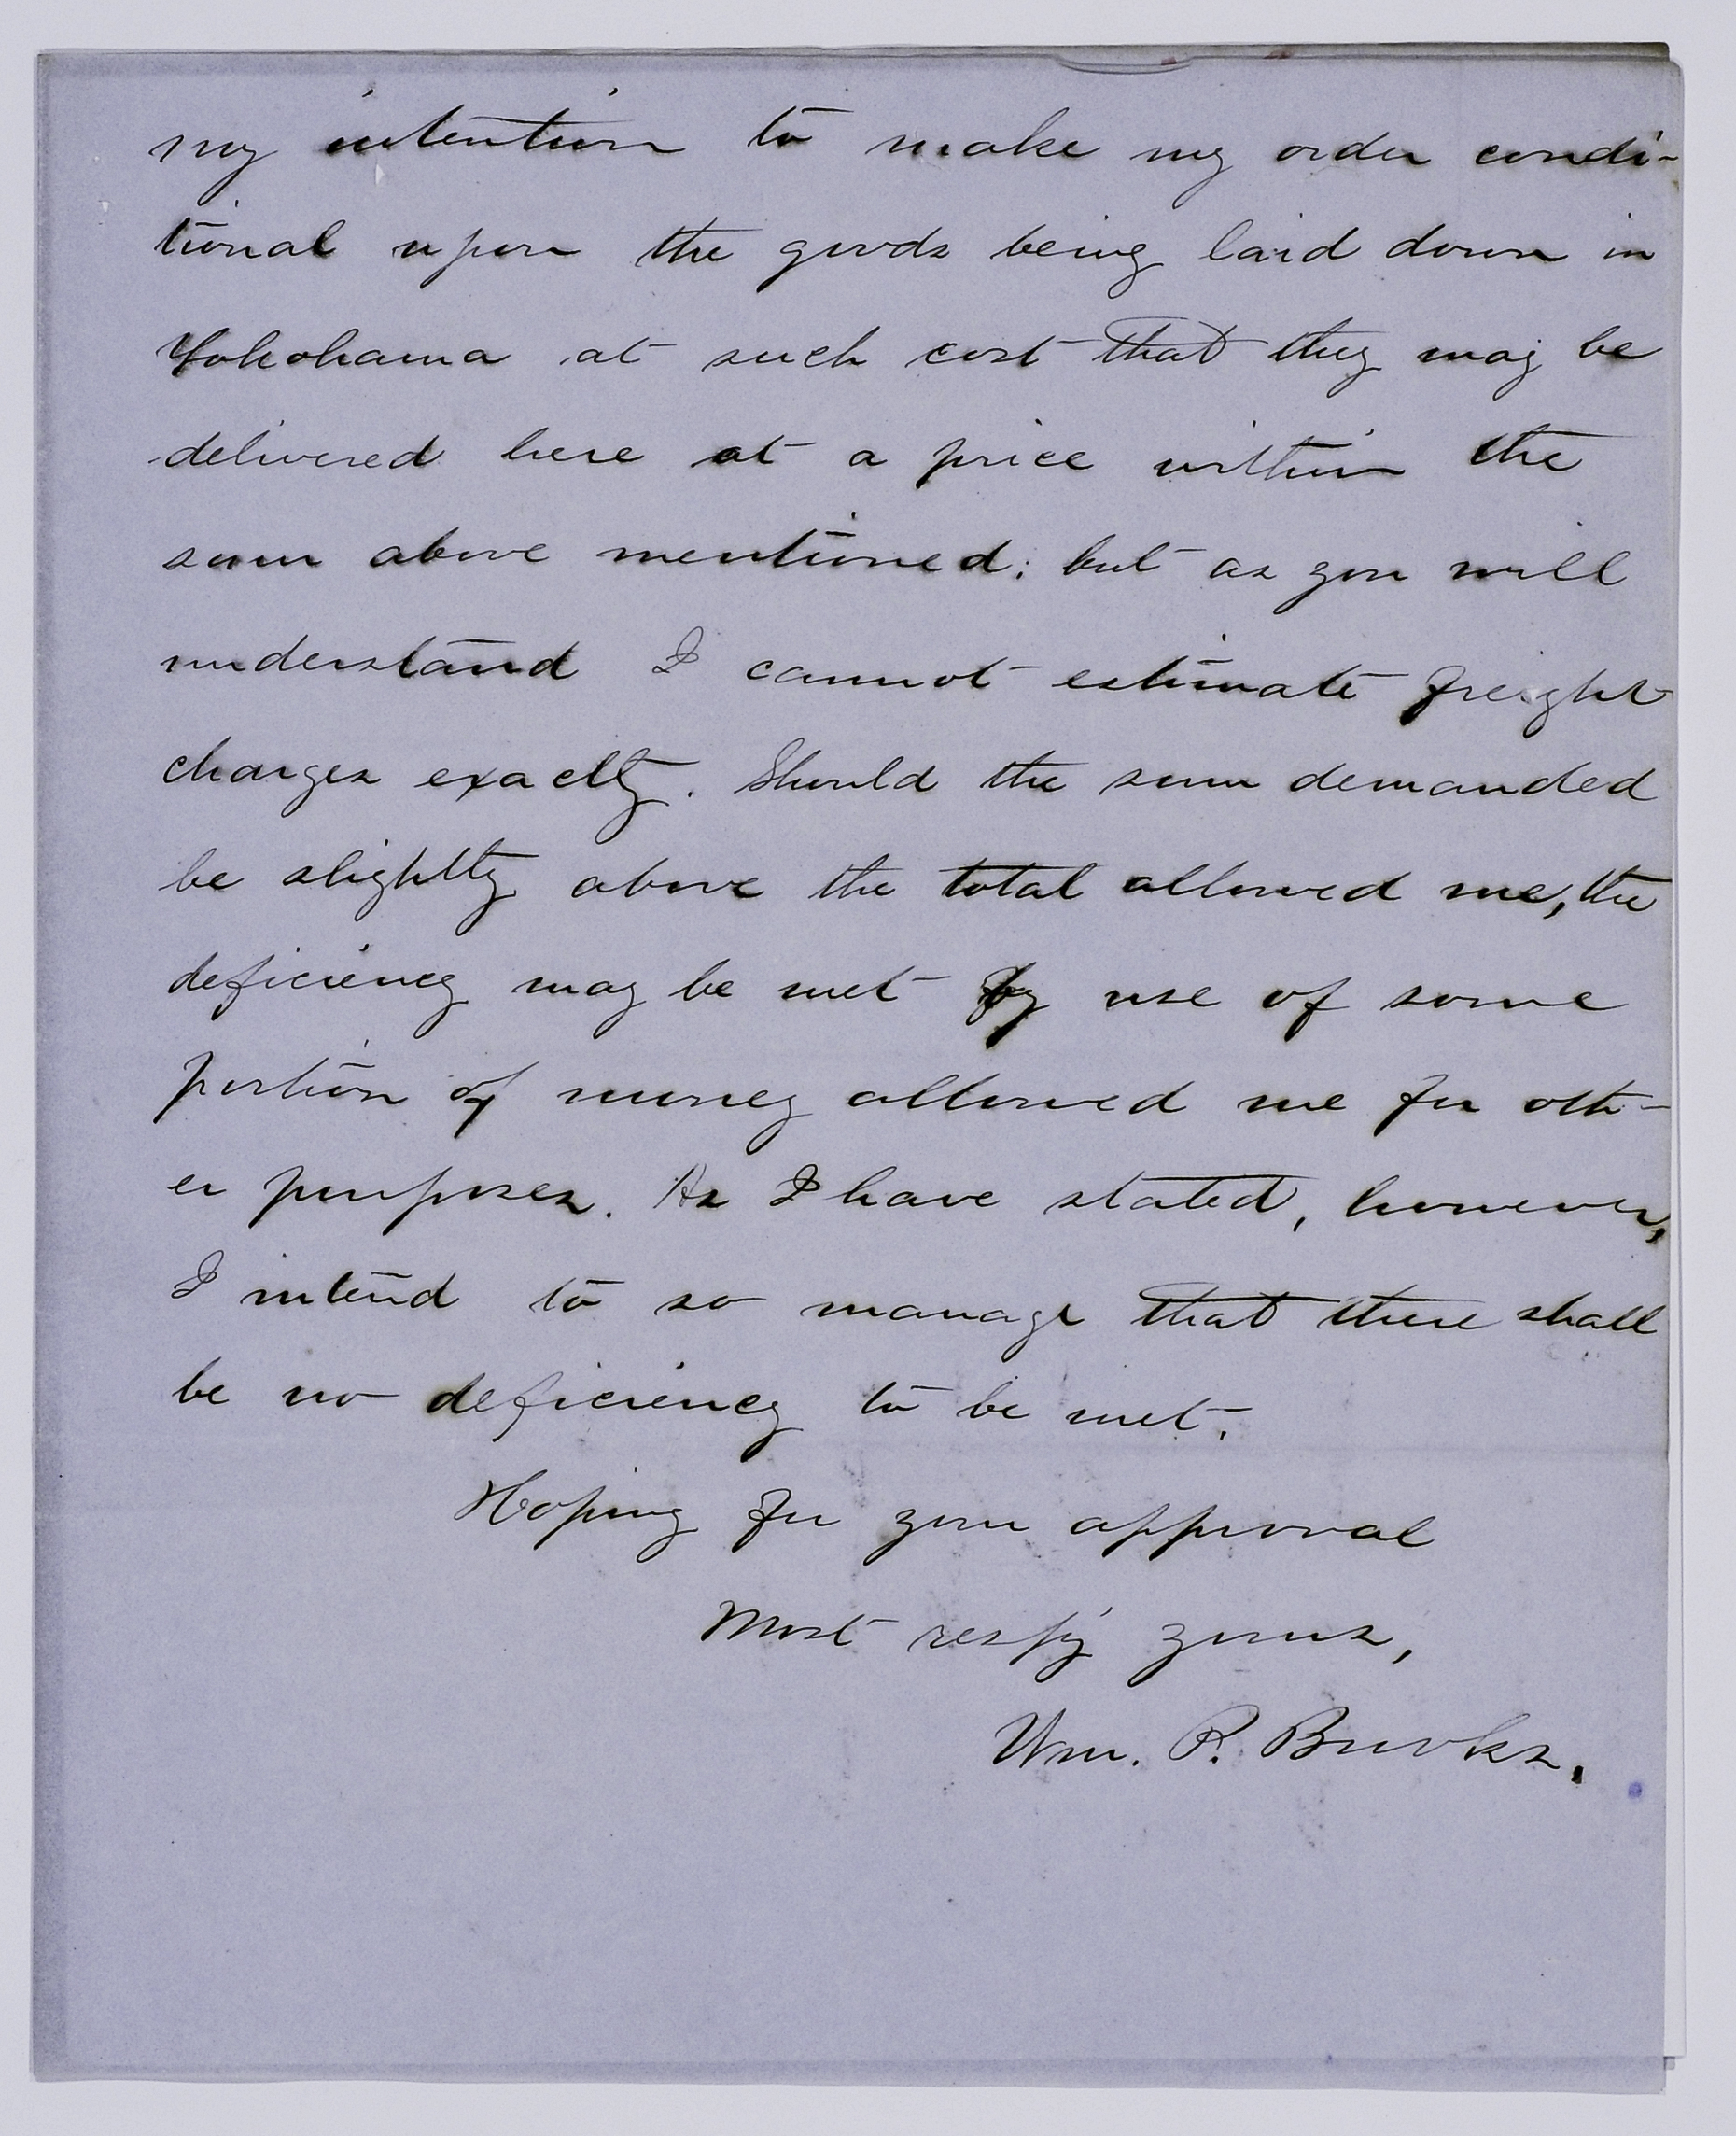 my intention to make my order condi-
tional upon the goods being laid down in
Yokohama at such cost that they may be
delivered here at a price within the
sum above mentioned; but as you will
understand I cannot estimate freight
charges exactly. Should the sum demanded
be slightly above the total allowed me, the
deficiency may be met by use of some
portion of money allowed me for oth-
er purposes. As I have stated, however,
I intend to so manage that there shall
be no deficiency to be met.
Hoping for your approval
Most resp'y yours,
Wm. P. Brooks.